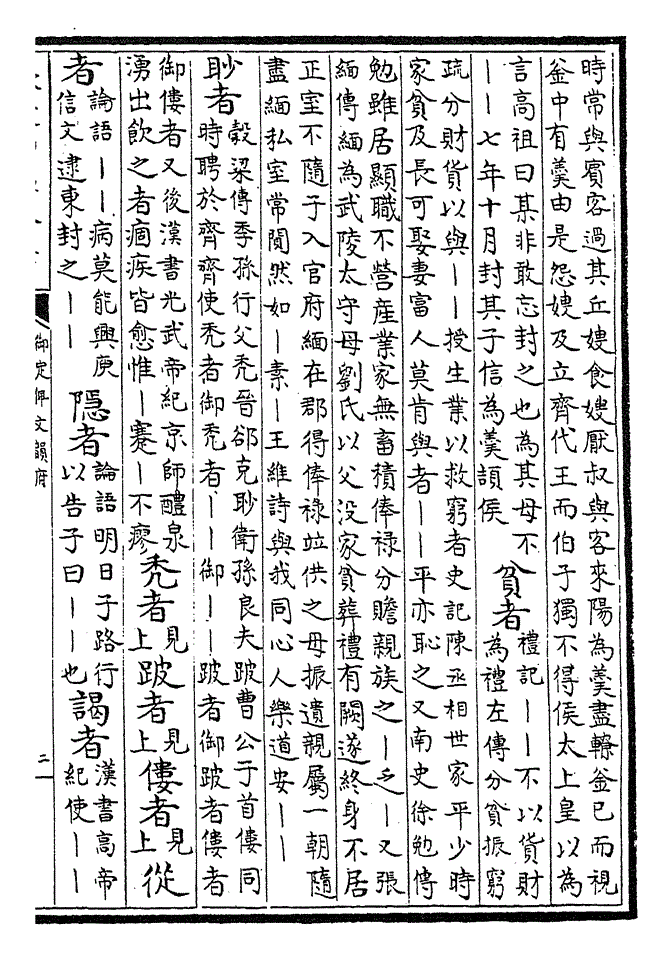 時常與賓客過其丘嫂食嫂厭叔與客來陽為羹盡轑釜已而視
釜中有羹由是怨嫂及立齊代王而伯子獨不得侯太上皇以為
言高祖曰某非敢忘封之也為其母不
丨丨七年十月封其子信為羹頡侯
貧者
禮記丨丨不以貨財
為禮左傳分貧振窮
疏分財貨以與丨丨授生業以救窮者史記陳丞相世家平少時
家貧及長可娶妻富人莫肯與者丨丨平亦恥之又南史徐勉傳
勉雖居顯職不營産業家無畜積俸禄分贍親族之丨乏丨又張
緬傳緬為武陵太守母劉氏以父没家貧葬禮有闕遂終身不居
正室不隨子入官府緬在郡得俸禄竝供之母振遺親屬一朝隨
盡緬私室常閴然如丨素丨王維詩與我同心人樂道安丨丨
眇者
榖梁傳季孫行父秃晉郤克眇衛孫良夫跛曹公子首僂同
時聘於齊齊使秃者御秃者丨丨御丨丨跛者御跛者僂者
御僂者又後漢書光武帝紀京師醴泉
湧出飲之者痼疾皆愈惟丨蹇丨不瘳
秃者
見
上
跛者
見
上
僂者
見
上
從
者
論語丨丨病莫能興庾
信文逮東封之丨丨
隱者
論語明日子路行
以告子曰丨丨也
謁者
漢書高帝
紀使丨丨
御定佩文韻府
二